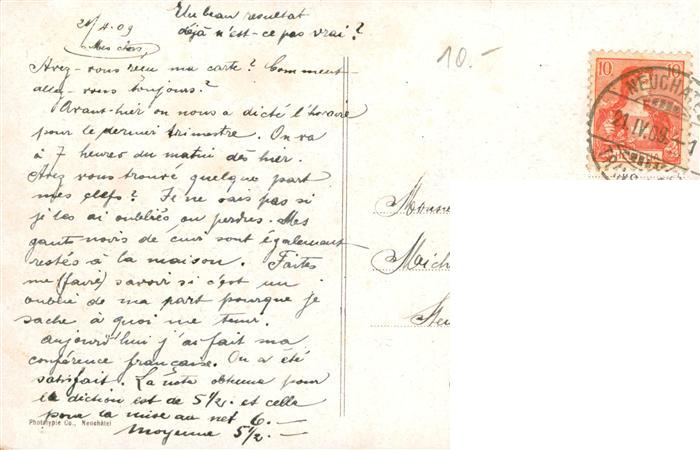 Un beau resultat
déjà n'est-ce pas vrai?
21/4.09
Mes chers,
Avez-vous reçu ma carte? Comment
allez-vous toujours?
Avant-hier on nous a dicté l'horaire
pour le dernier trimestre. On va
à 7 heures du matin dès hier.
Avez vous trouvé quelque part
mes clefs? Je ne sais pas si
je les ai oubliés ou perdus. Mes
gants noirs de cuir sont également
restés à la maison. Faites
me (faire) savoir si c'est un
oublie de ma part pourque je
sache à quoi me tenir.
Aujourd'hui j'ai fait ma
conférence française. On a été
satisfait. La note obtenue pour
la diction est de 5 1/2. et celle
pour la mise au net 6.-
moyenne 5 1/2.-
Phototypie Co., Neuchâtel
10.-
10 10
NEUCHÂT
21.IV.09.-1
HELVETIA
Monsie
Maich
Neu